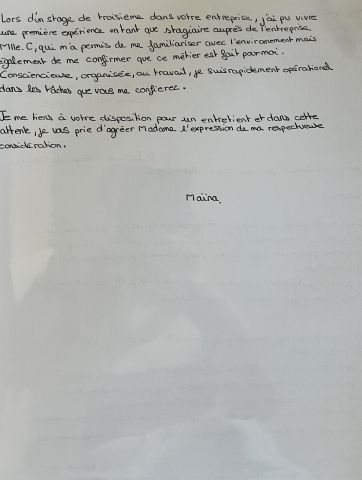 Lors d'un stage de troisième dans votre entreprise, j'ai pu vivre
une première expérience en tant que stagiaire auprès de l'entreprise
Mlle. C, qui m'a permis de me familiariser avec l'environement mais
également de me confirmer que ce métier est fait pour moi.
Consciencieuse, organisée, au travail, je suis rapidement opérationel
dans les tâches que vous me confierec.
Je me tiens à votre disposition pour un entretient et dans cette
attente, je vous prie d'agréer Madame l'expression de ma respectueuse
considération.
Maïna.